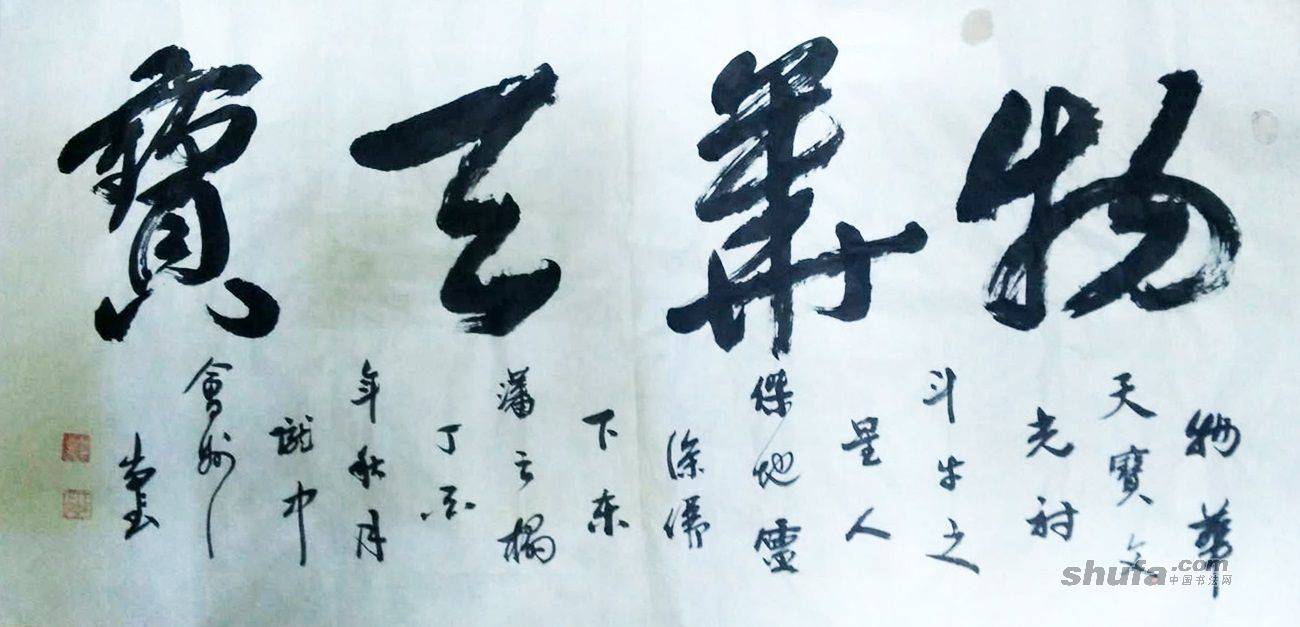 物華天寶
物華
天寶文
光射
斗牛之
星人
傑地靈
徐儒
下东
藩之榻
丁
年秋月
隴中
會州
shufa.com
中国书法网